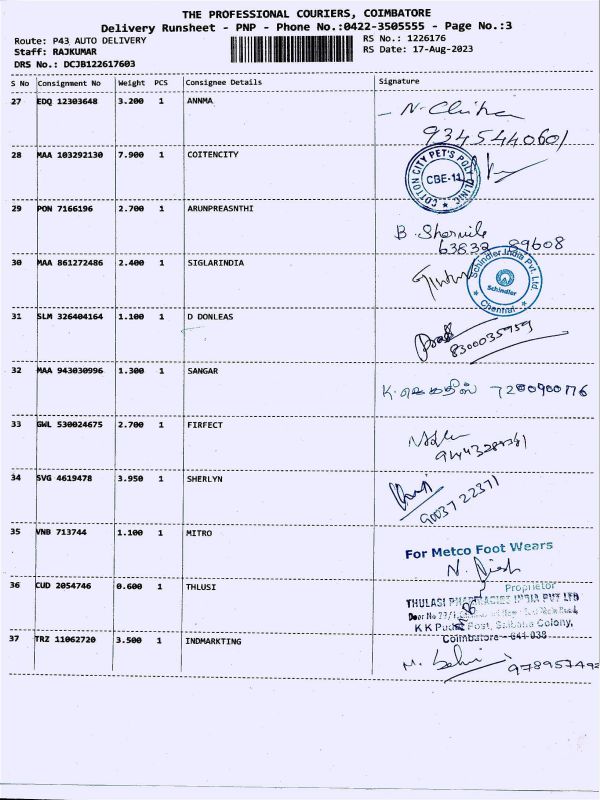 THE PROFESSIONAL COURIERS, COIMBATORE
Delivery Runsheet - PNP - Phone No.:0422-3505555 - Page No.:3
Route: P43 AUTO DELIVERY RS No.: 1226176
Staff: RAJKUMAR RS Date: 17-Aug-2023
DRS No.: DCJB122617603
S No Consignment No Weight PCS Consignee Details Signature
27 EDQ 12303648 3.200 1 ANNMA N. Chitra
9345440601
28 MAA 103292130 7.900 1 COITENCITY COTTON CITY PET'S POLY CLINIC CBE-11
29 PON 7166196 2.700 1 ARUNPREASNTHI B.
63832 89608
30 MAA 861272486 2.400 1 SIGLARINDIA Schindler India Pvt. Ltd. Schindler Chennai
31 SLM 326404164 1.100 1 D DONLEAS
8300035959
32 MAA 943030996 1.300 1 SANGAR K. 7200900776
33 GWL 530024675 2.700 1 FIRFECT
34 SVG 4619478 3.950 1 SHERLYN
9003722371
35 VNB 713744 1.100 1 MITRO For Metco Foot Wears
N.
Proprietor
36 CUD 2054746 0.600 1 THLUSI THULASI PHARMACIES INDIA PVT LTD
Door No
K K Pudur Post, Saibaba Colony,
Coimbatore - 641 038
37 TRZ 11062720 3.500 1 INDMARKTING M.